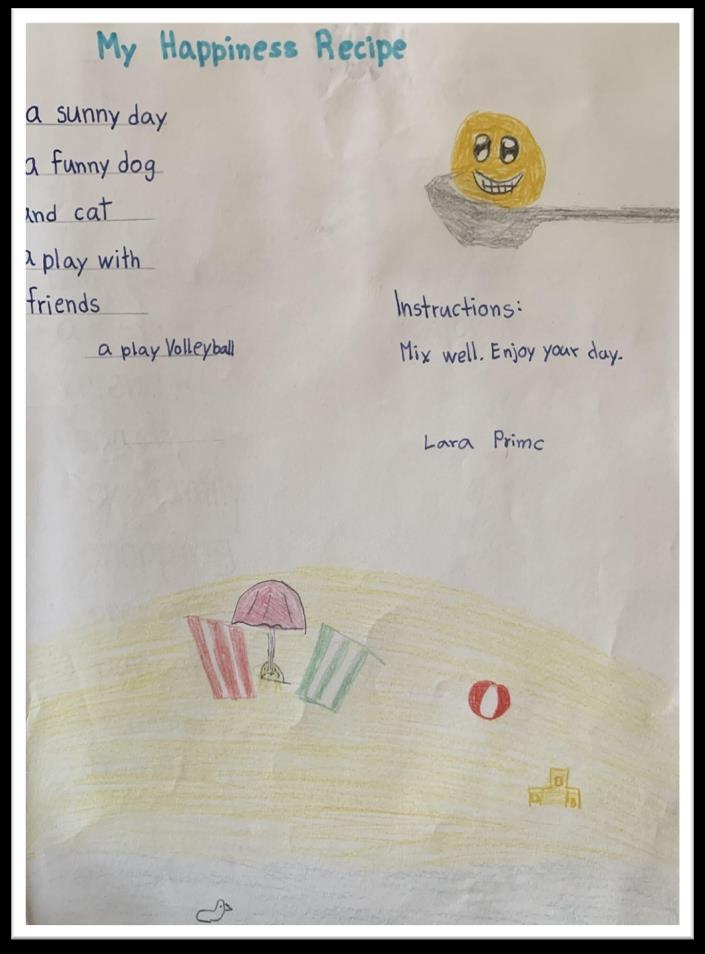 My Happiness Recipe
a sunny day
a funny dog
and cat
a play with
friends
a play Volleyball
Instructions:
Mix well. Enjoy your day.
Lara Primc